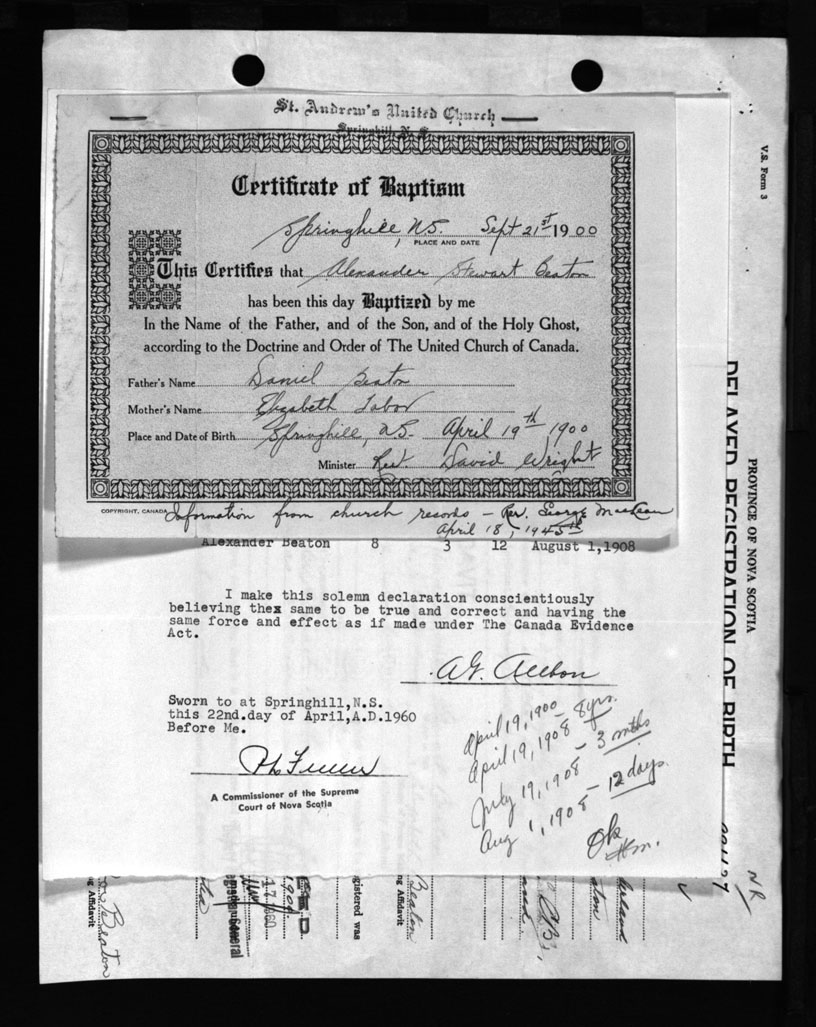 St. Andrew's United Church
Springhill, N. S.
Certificate of Baptism
Springhill, N.S. Sept 21st 1900
PLACE AND DATE
This Certifies that Alexander Stewart Beaton
has been this day Baptized by me
In the Name of the Father, and of the Son, and of the Holy Ghost,
according to the Doctrine and Order of The United Church of Canada.
Father's Name Daniel Beaton
Mother's Name Elizabeth Tabor
Place and Date of Birth Springhill, N.S. April 19th 1900
Minister Rev. David Wright
COPYRIGHT, CANADA Information from church records - Rev. George MacLean
April 18, 1945
Alexander Beaton 8 3 12 August 1,1908
I make this solemn declaration conscientiously
believing thex same to be true and correct and having the
same force and effect as if made under The Canada Evidence
Act.
A.G.
Sworn to at Springhill,N.S.
this 22nd.day of April,A.D.1960
Before Me.
A Commissioner of the Supreme
Court of Nova Scotia
April 19, 1900 - 8 yrs.
April 19, 1908
July 19, 1908 - 3 mths
Aug 1, 1908 - 12 days.
Ok
V.S. Form 3
PROVINCE OF NOVA SCOTIA
DELAYED REGISTRATION OF BIRTH
NR
Beaton
ng Affidavit
General
17 1960
gistered was
Beaton
ng Affidavit
aton
berland